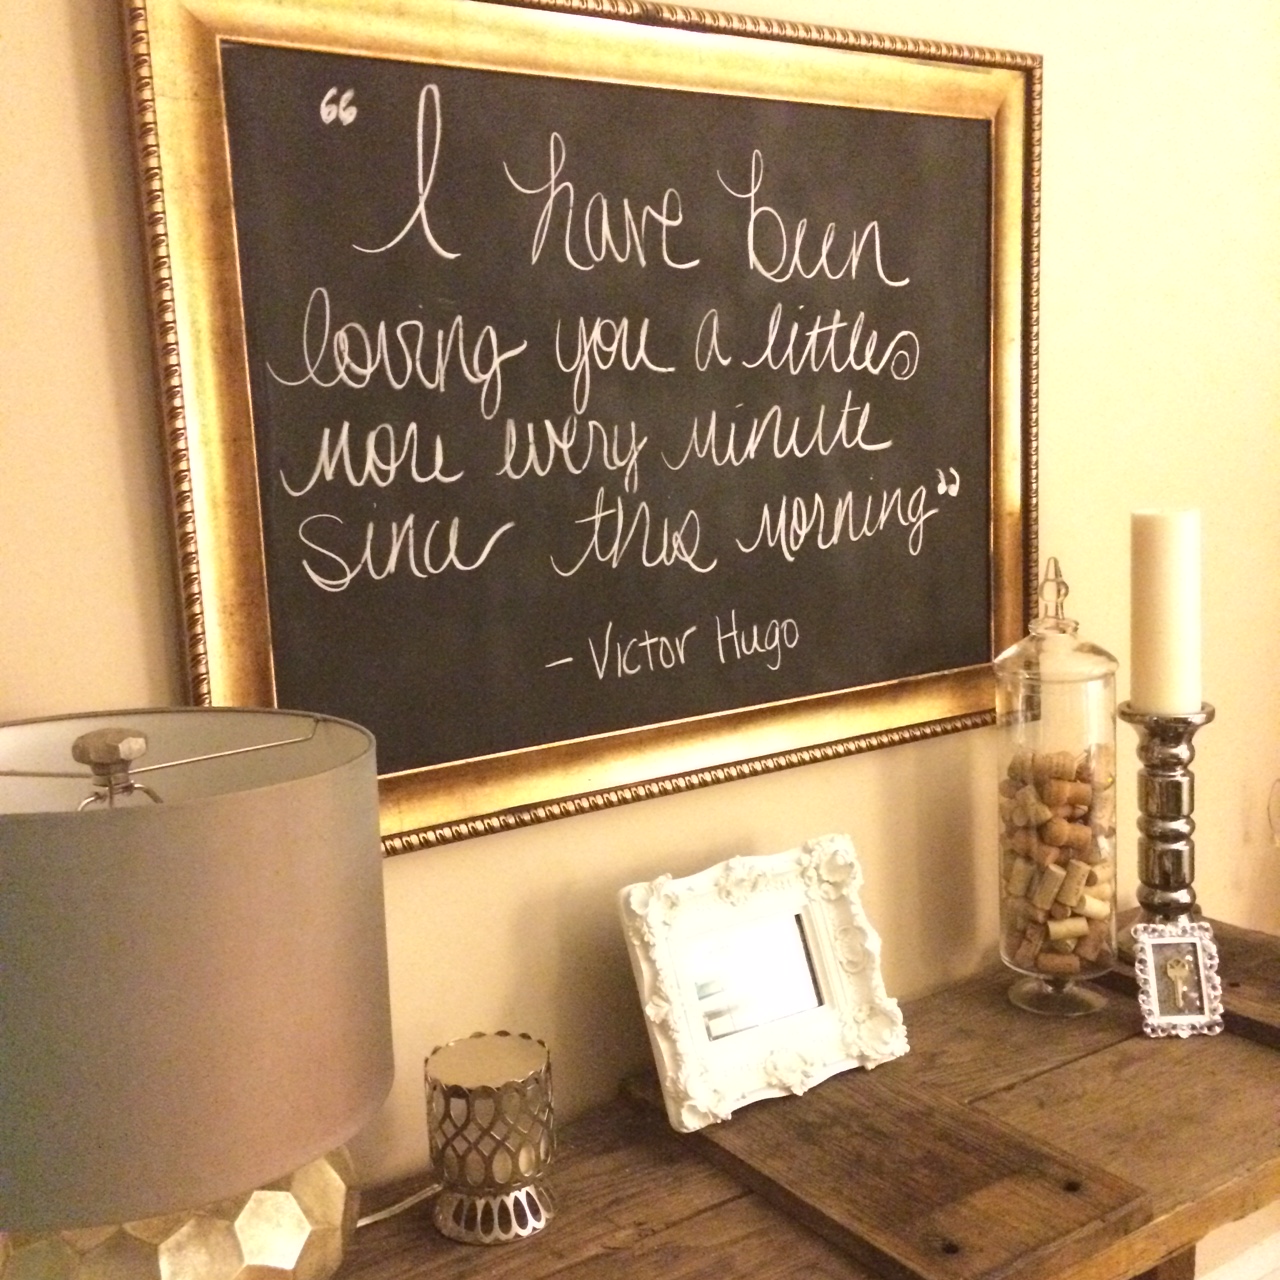 “I have been
loving you a little
more every minute
since this morning”
- Victor Hugo